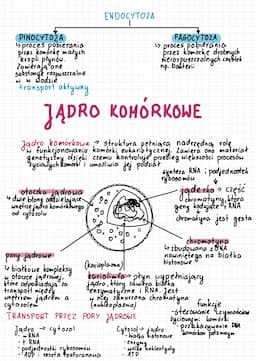 ENDOCYTOZA
PINOCYTOZA
↳ proces pobierania
przez komórkę małych
kropli płynów.
Zawierające
substancje rozpuszczalne
w wodzie
transport aktywny
FAGOCYTOZA
↳ proces pobierania
przez komórkę drobnych
nierozpuszczalnych cząstek
np. bakterii
JĄDRO KOMÓRKOWE
jądro komórkowe → struktura pełniąca nadrzędną rolę
w funkcjonowaniu komórki eukariotycznej. Zawiera ona materiał
genetyczny dzięki czemu kontroluje przebieg większości procesów
życiowych komórki i umożliwia jej podział
synteza RNA i podjednostek
rybosomów
otoczka jądrowa
↳ dwie błony oddzielające
wnętrze jądra komórkowego
od cytozolu
jąderko → część
chromatyny, która
geny kodujące rRNA
chromatyna jest gęsta
chromatyna
↳ zbudowana z DNA
nawiniętego na białka
histonowe
pory jądrowe
↳ białkowe kompleksy
w otoczce jądrowej,
które odpowiadają za
transport między
wnętrzem jądra a
cytozolem
(karioplazma)
kariolimfa → płyn wypełniający
jądro, który zawiera białka
enzymatyczne i RNA. Jest
w niej zanurzona chromatyna
funkcje
życiowymi komórki
- przekazywanie DNA
komórkom potomnym
TRANSPORT PRZEZ PORY JĄDROWE
Jądro → cytozol
- mRNA
- tRNA
- podjednostki rybosomów
- ADP
Cytozol → jądro
- białka histonowe
- enzymy
- wolne nukleotydy
- ATP